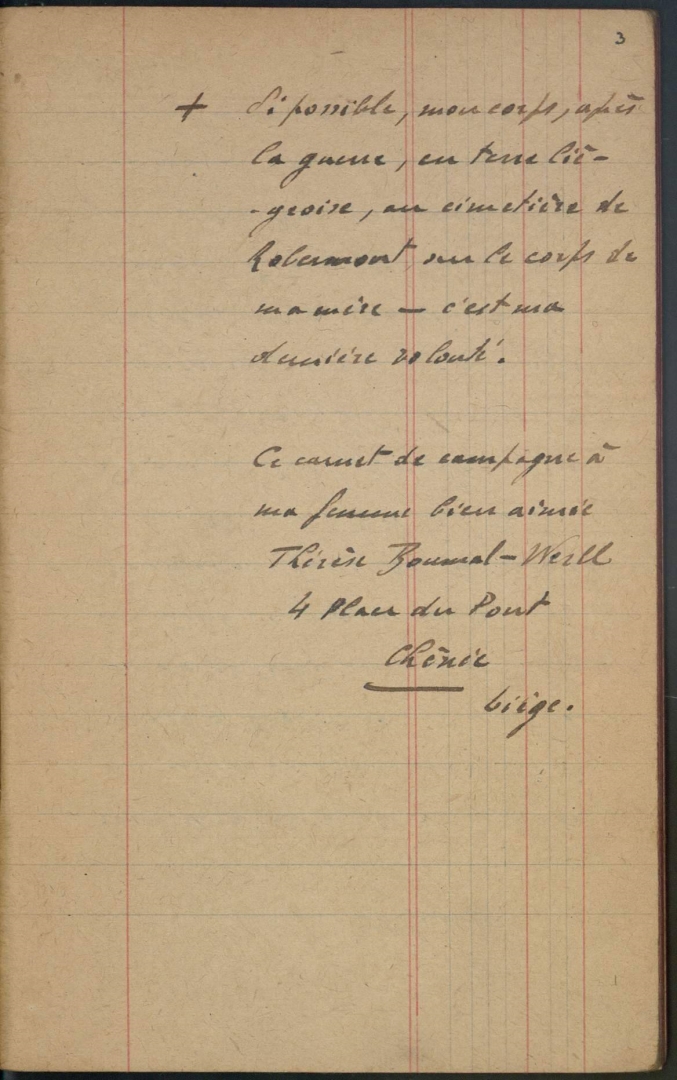 3
+ Si possible, mon corps, après
la guerre, en terre lié-
-geoise, au cimetière de
Robermont, sur le corps de
ma mère — c'est ma
dernière volonté.
Ce carnet de campagne à
ma femme bien aimée
Thérèse Boumal-Weill
4 Place du Pont
Chênée
Liège.